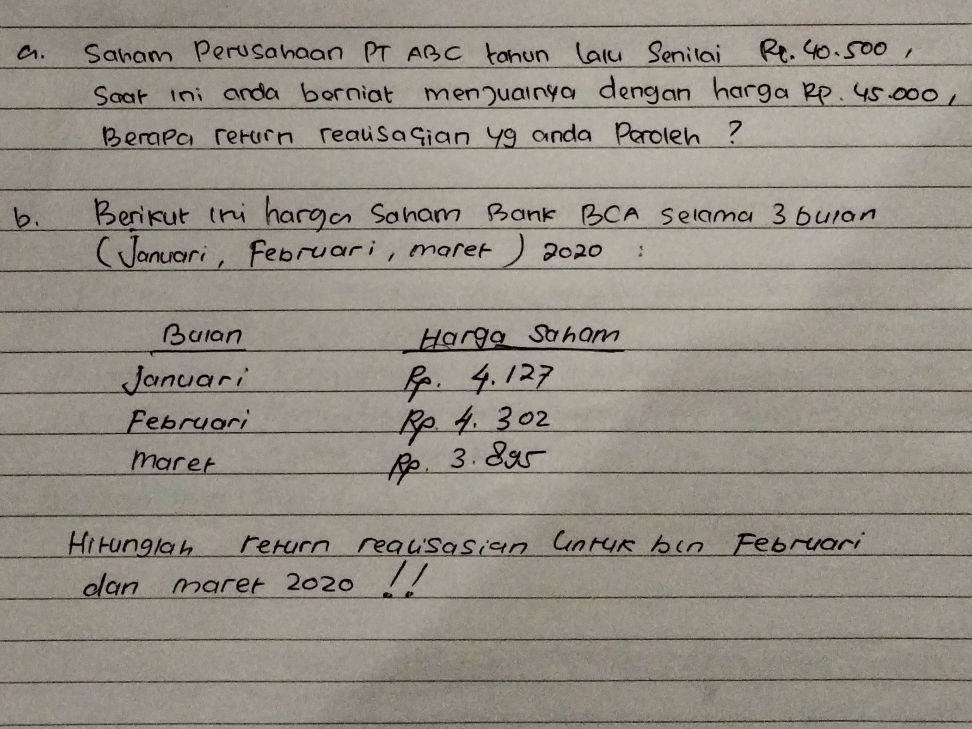 a. Saham Perusahaan PT ABC tahun lalu Senilai Rp. 40.500,
Saat ini anda berniat menjualnya dengan harga Rp. 45.000,
Berapa return realisasian yg anda Peroleh ?
b. Berikut ini harga Saham Bank BCA Selama 3 bulan
(Januari, Februari, maret) 2020 :
Bulan Harga Saham
Januari Rp. 4.127
Februari Rp. 4.302
maret Rp. 3.895
Hitunglah return realisasian Untuk bln Februari
dan maret 2020 !!